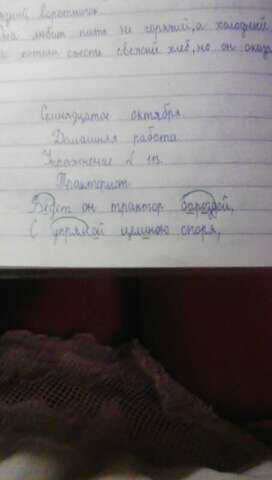 он любит пить не горячий, а холодный
хотим съесть свежий хлеб, но он оказ
Семнадцатое октября.
Домашняя работа
Упражнение
Тракторист
Ведет он трактор бороздой,
С упрямой целиною споря,